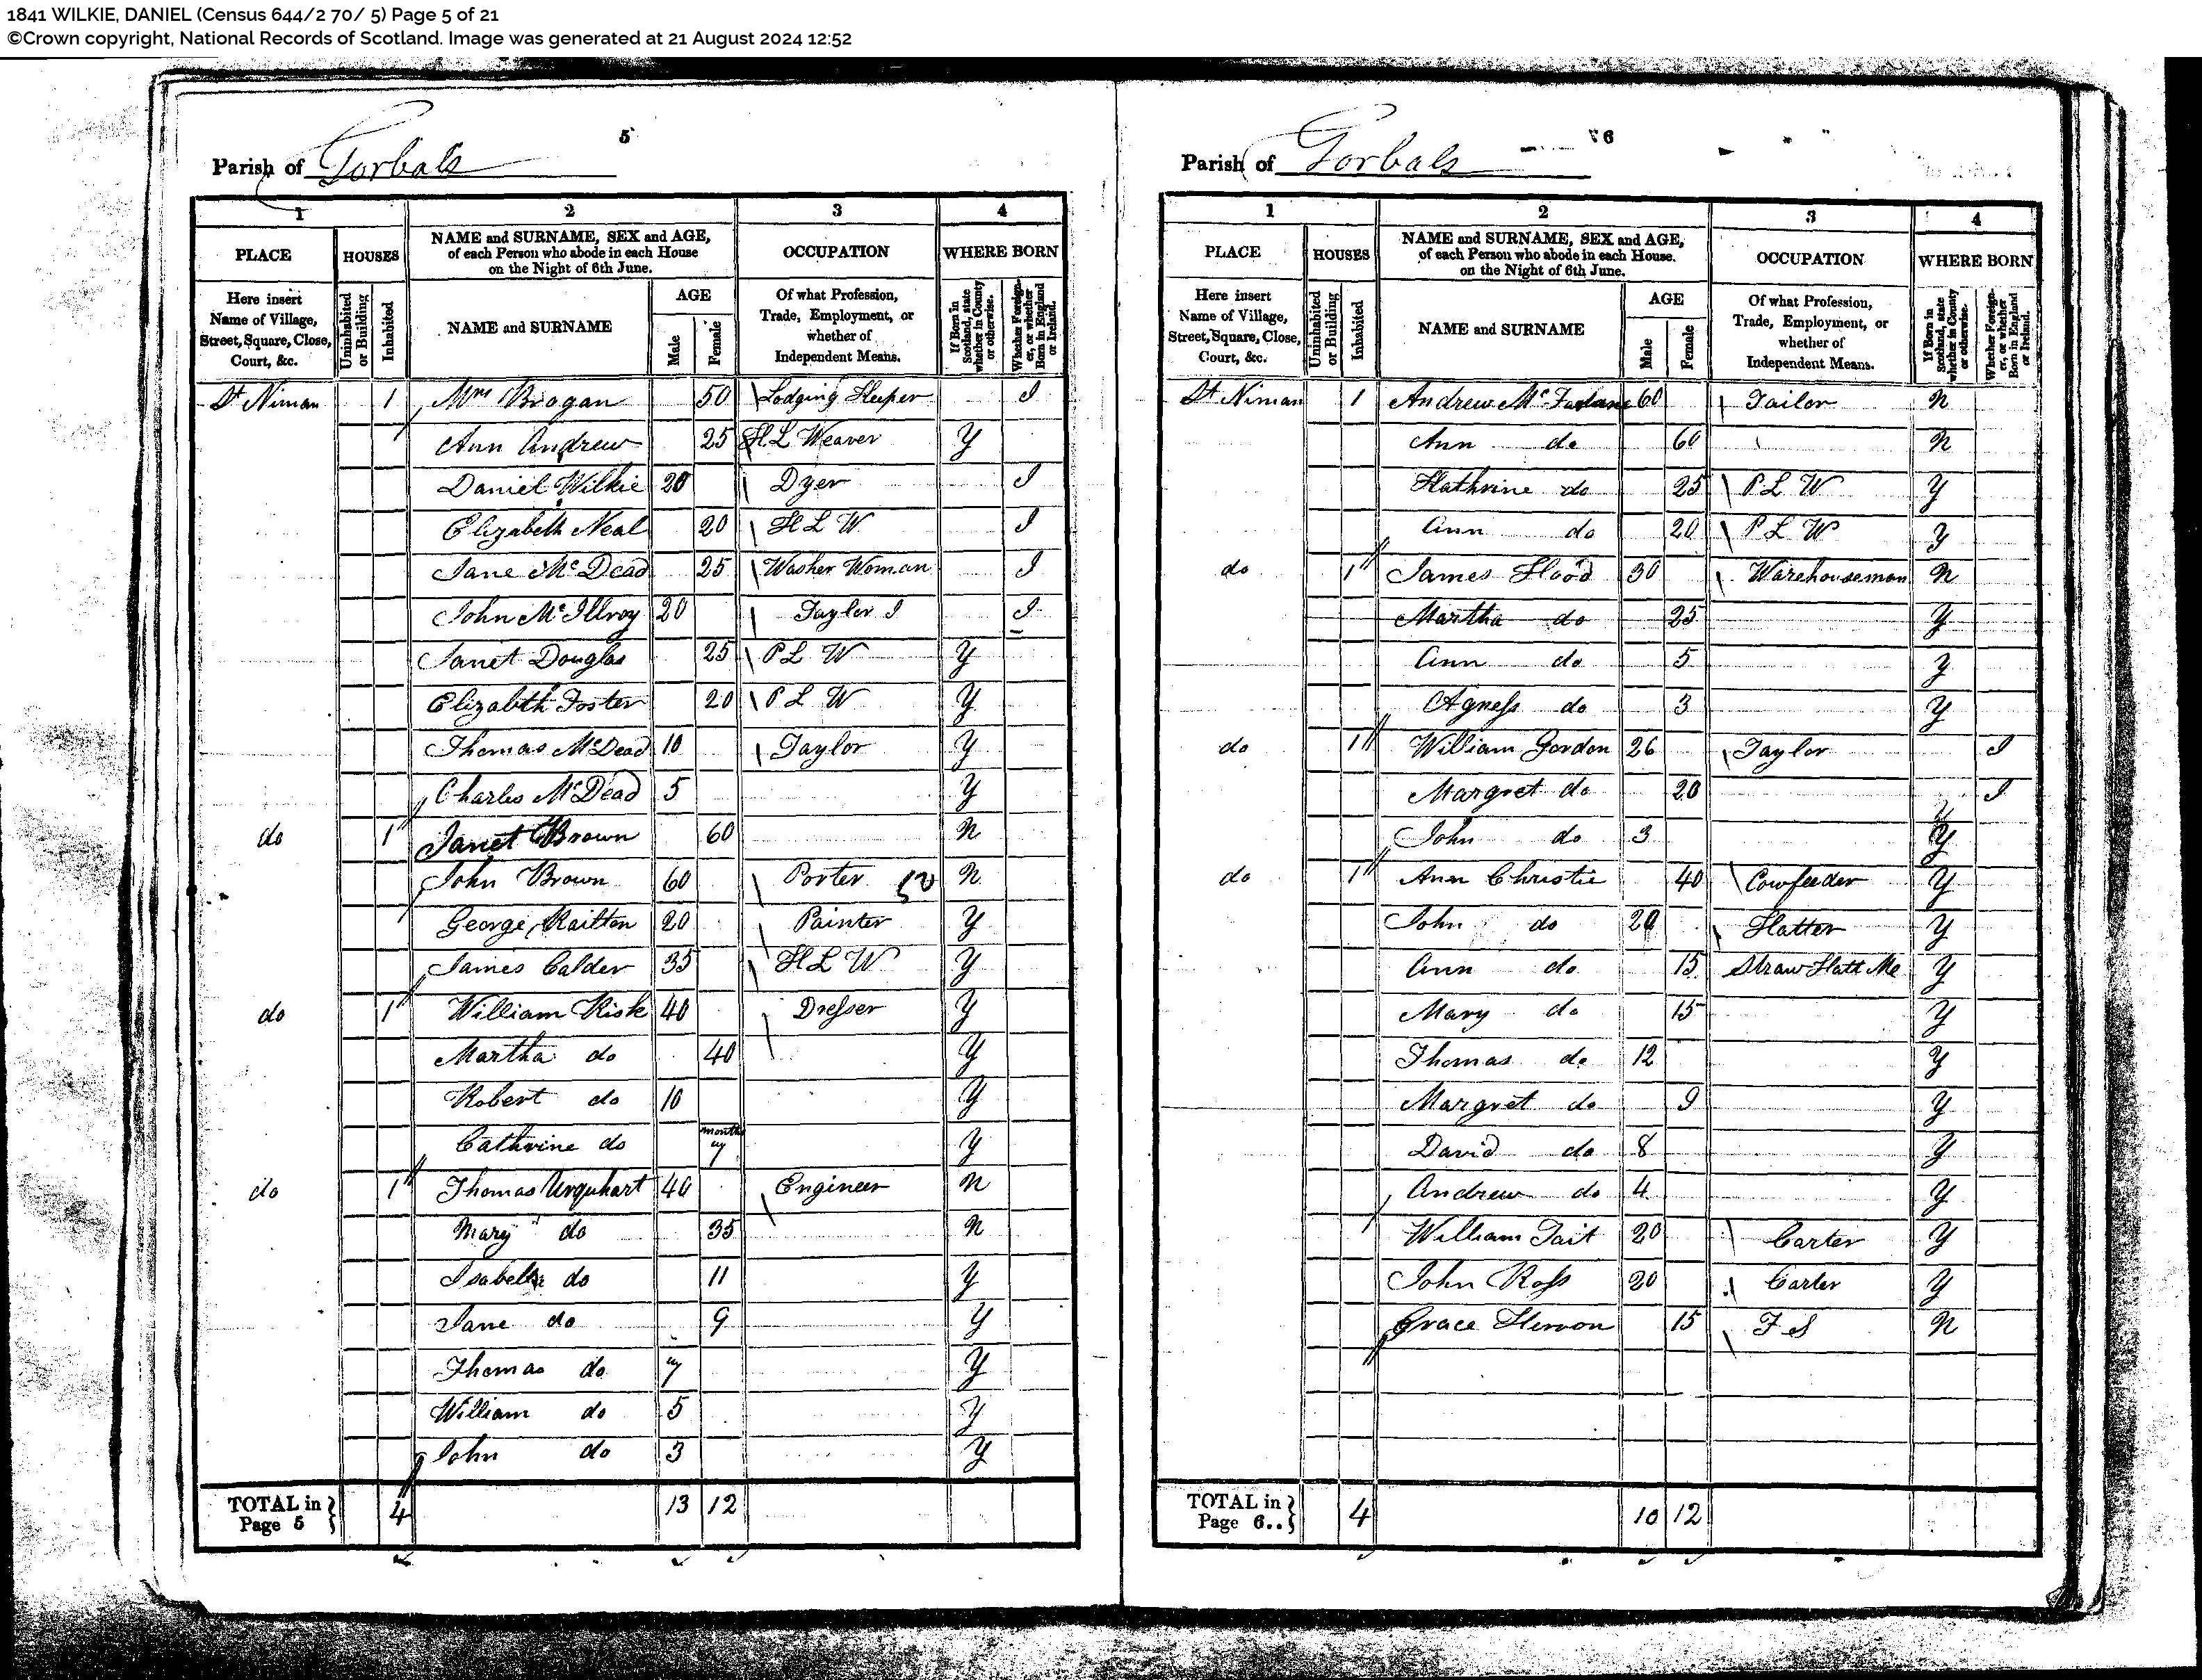 1841 WILKIE, DANIEL (Census 644/2 70/ 5) Page 5 of 21
©Crown copyright, National Records of Scotland. Image was generated at 21 August 2024 12:52
5
Parish of Gorbals
1 2 3 4
PLACE HOUSES NAME and SURNAME, SEX and AGE, of each Person who abode in each House on the Night of 6th June. OCCUPATION WHERE BORN
Here insert Name of Village, Street, Square, Close, Court, &c. Uninhabited or Building Inhabited NAME and SURNAME AGE Male Female Of what Profession, Trade, Employment, or whether of Independent Means. If Born in Scotland, state whether in County or otherwise. Whether Foreigner, or whether Born in England or Ireland.
St Ninian 1 Mrs Brogan 50 Lodging Keeper I
Ann Andrew 25 H L Weaver Y
Daniel Wilkie 20 Dyer I
Elizabeth Neal 20 H L W I
Jane McDead 25 Washer Woman I
John McIllroy 20 Taylor J I
Janet Douglas 25 P L W Y
Elizabeth Foster 20 P L W Y
Thomas McDead 10 Taylor Y
Charles McDead 5 Y
do 1 Janet Brown 60 N
John Brown 60 Porter N
George Railton 20 Painter Y
James Calder 35 H L W Y
do 1 William Risk 40 Dresser Y
Martha do 40 Y
Robert do 10 Y
Cathrine do months 7 Y
do 1 Thomas Urquhart 40 Engineer N
Mary do 35 N
Isabella do 11 Y
Jane do 9 Y
Thomas do 7 Y
William do 5 Y
John do 3 Y
TOTAL in Page 5 4 13 12
6
Parish of Gorbals
1 2 3 4
PLACE HOUSES NAME and SURNAME, SEX and AGE, of each Person who abode in each House. on the Night of 6th June. OCCUPATION WHERE BORN
Here insert Name of Village, Street, Square, Close, Court, &c. Uninhabited or Building Inhabited NAME and SURNAME AGE Male Female Of what Profession, Trade, Employment, or whether of Independent Means. If Born in Scotland, state whether in County or otherwise. Whether Foreigner, or whether Born in England or Ireland.
St Ninian 1 Andrew McFarlane 60 Tailor N
Ann do 60 N
Kathrine do 25 P L W Y
Ann do 20 P L W Y
do 1 James Hood 30 Warehouseman N
Martha do 25 Y
Ann do 5 Y
Agness do 3 Y
do 1 William Gordon 26 Taylor I
Margret do 20 I
John do 3 Y
do 1 Ann Christie 40 Cowfeeder Y
John do 20 Hatter Y
Ann do 15 Straw Hatt Me Y
Mary do 15 Y
Thomas do 12 Y
Margret do 9 Y
David do 8 Y
Andrew do 4 Y
William Tait 20 Carter Y
John Ross 20 Carter Y
Grace Herron 15 F S N
TOTAL in Page 6.. 4 10 12